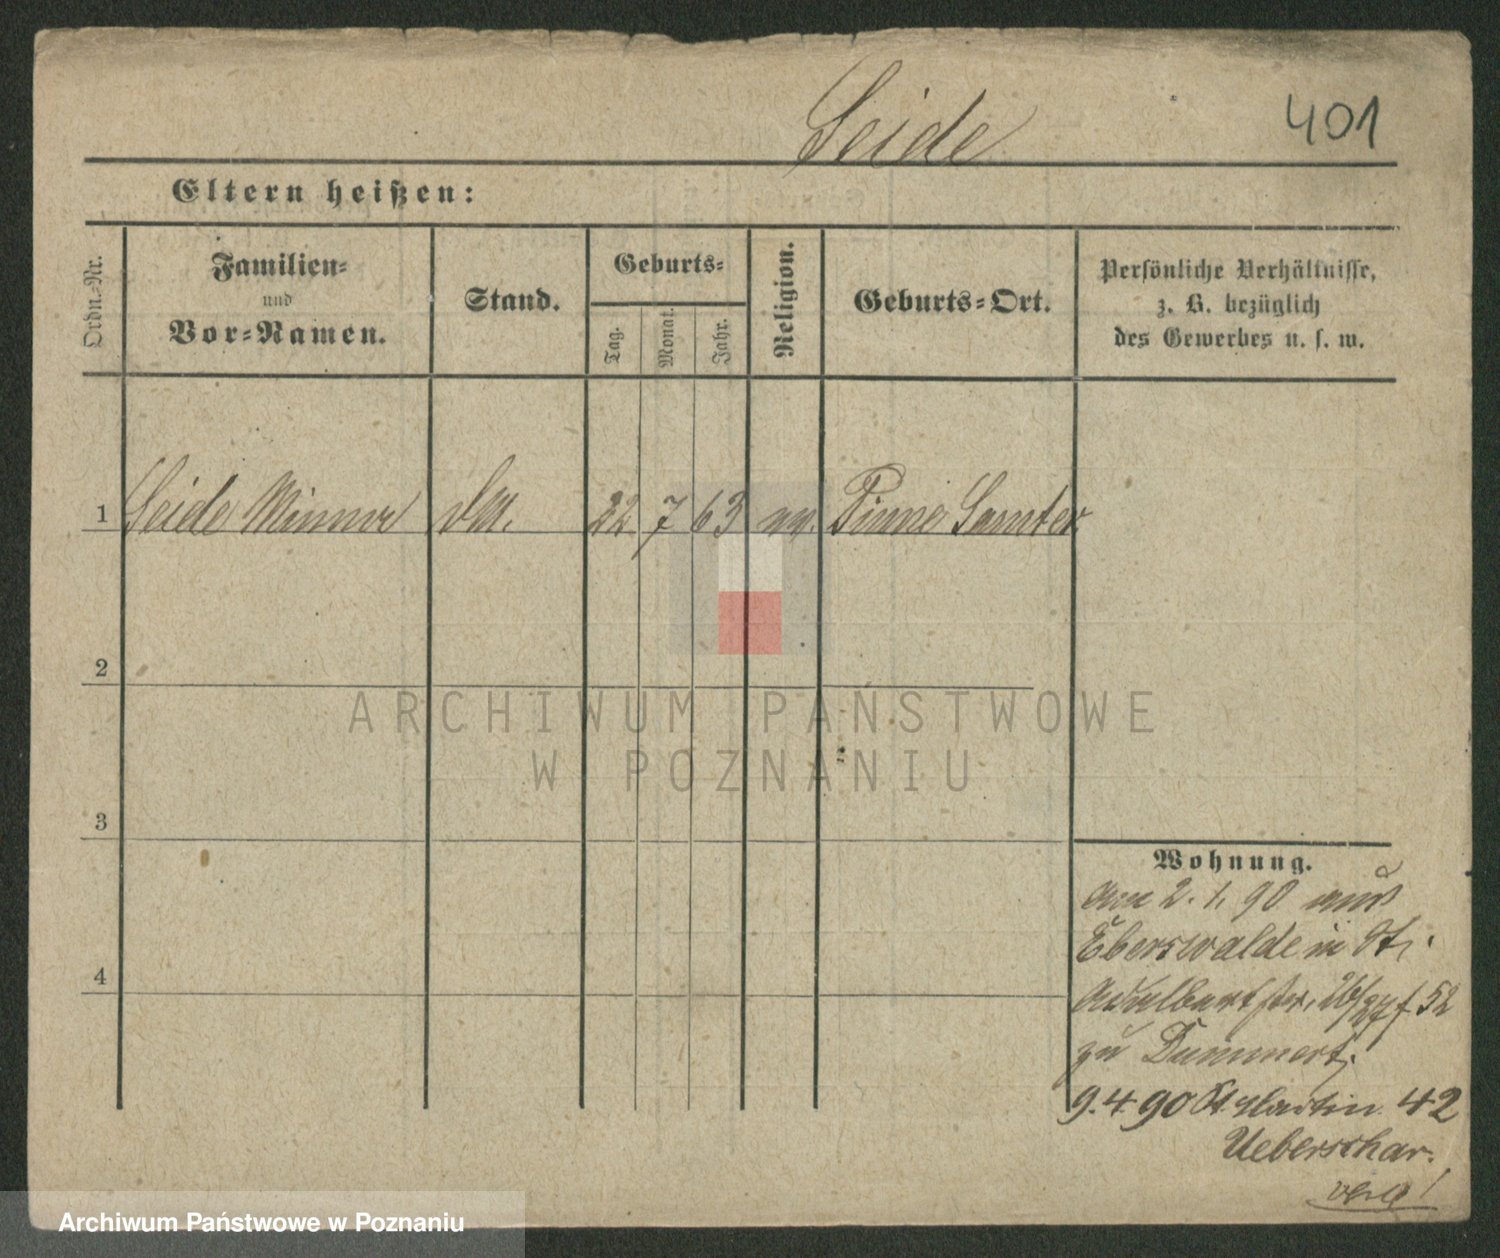 Seide
401
Eltern heißen:
Ordn.-Nr.
Familien-
und
Vor-Namen.
Stand.
Geburts-
Tag.
Monat.
Jahr.
Religion.
Geburts-Ort.
Persönliche Verhältnisse,
z. B. bezüglich
des Gewerbes u. s. w.
1 Seide Minna 22 7 63 Pinne Samter
2
3
4
Wohnung.
am 2. 1. 90 aus
Eberswalde in St.
Adalbertstr. 26/27 f 52
zu Dummert.
9. 4. 90 St. Martin 42
Ueberschar.
ARCHIWUM PAŃSTWOWE
W POZNANIU
Archiwum Państwowe w Poznaniu